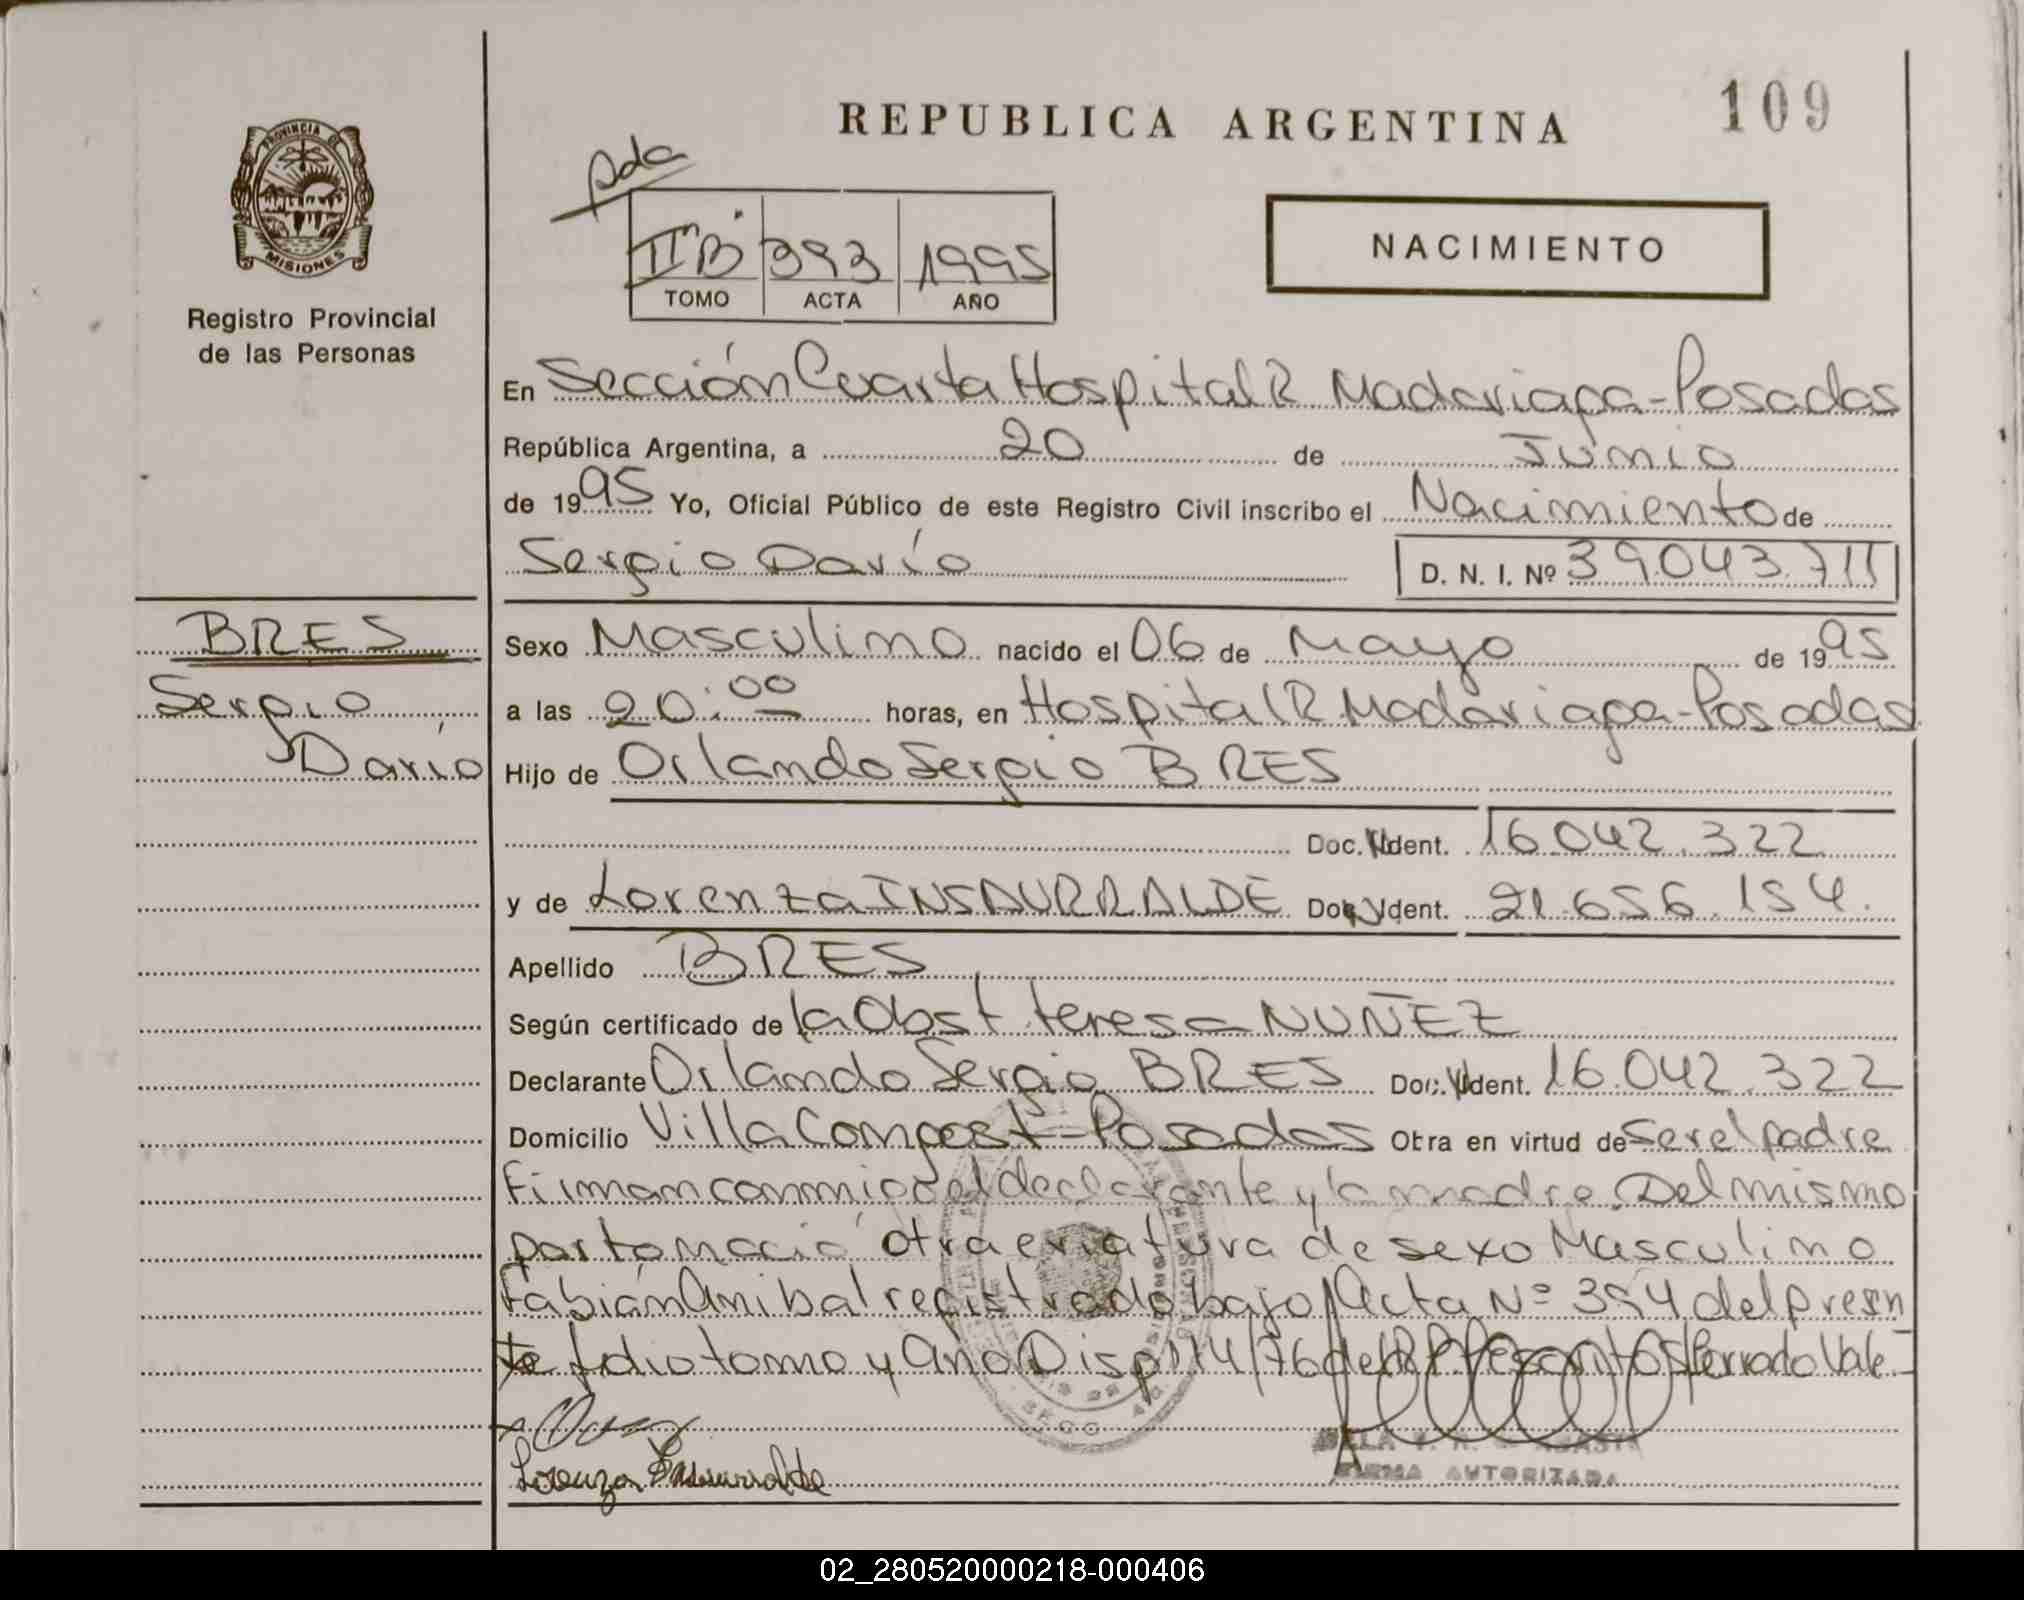 REPUBLICA ARGENTINA
109
PROVINCIA DE
MISIONES
Registro Provincial
de las Personas
Pda
II"B" 393 1995
TOMO ACTA AÑO
NACIMIENTO
En Sección Cuarta Hospital R Madariaga - Posadas
República Argentina, a 20 de Junio
de 1995 Yo, Oficial Público de este Registro Civil inscribo el Nacimiento de
Sergio Darío D. N. I. Nº 39.043.711
BRES
Sergio
Darío
Sexo Masculino nacido el 06 de Mayo de 1995
a las 20:00 horas, en Hospital R Madariaga - Posadas
Hijo de Orlando Sergio BRES
Doc. Ident. 16.042.322
y de Lorenza INSAURRALDE Doc. Ident. 21.656.154.
Apellido BRES
Según certificado de la Obst Teresa NUÑEZ
Declarante Orlando Sergio BRES Doc. Ident. 16.042.322
Domicilio Villa Compost - Posadas Obra en virtud de ser el padre
Firman conmigo el declarante y la madre. Del mismo
parto nació otra criatura de sexo Masculino
Fabián Anibal registrado bajo Acta Nº 394 del presen
te folio tomo y Año Disp 114/76 del R.P. Perrado Vale-
Lorenza Insaurralde
FIRMA AUTORIZADA
02_280520000218-000406